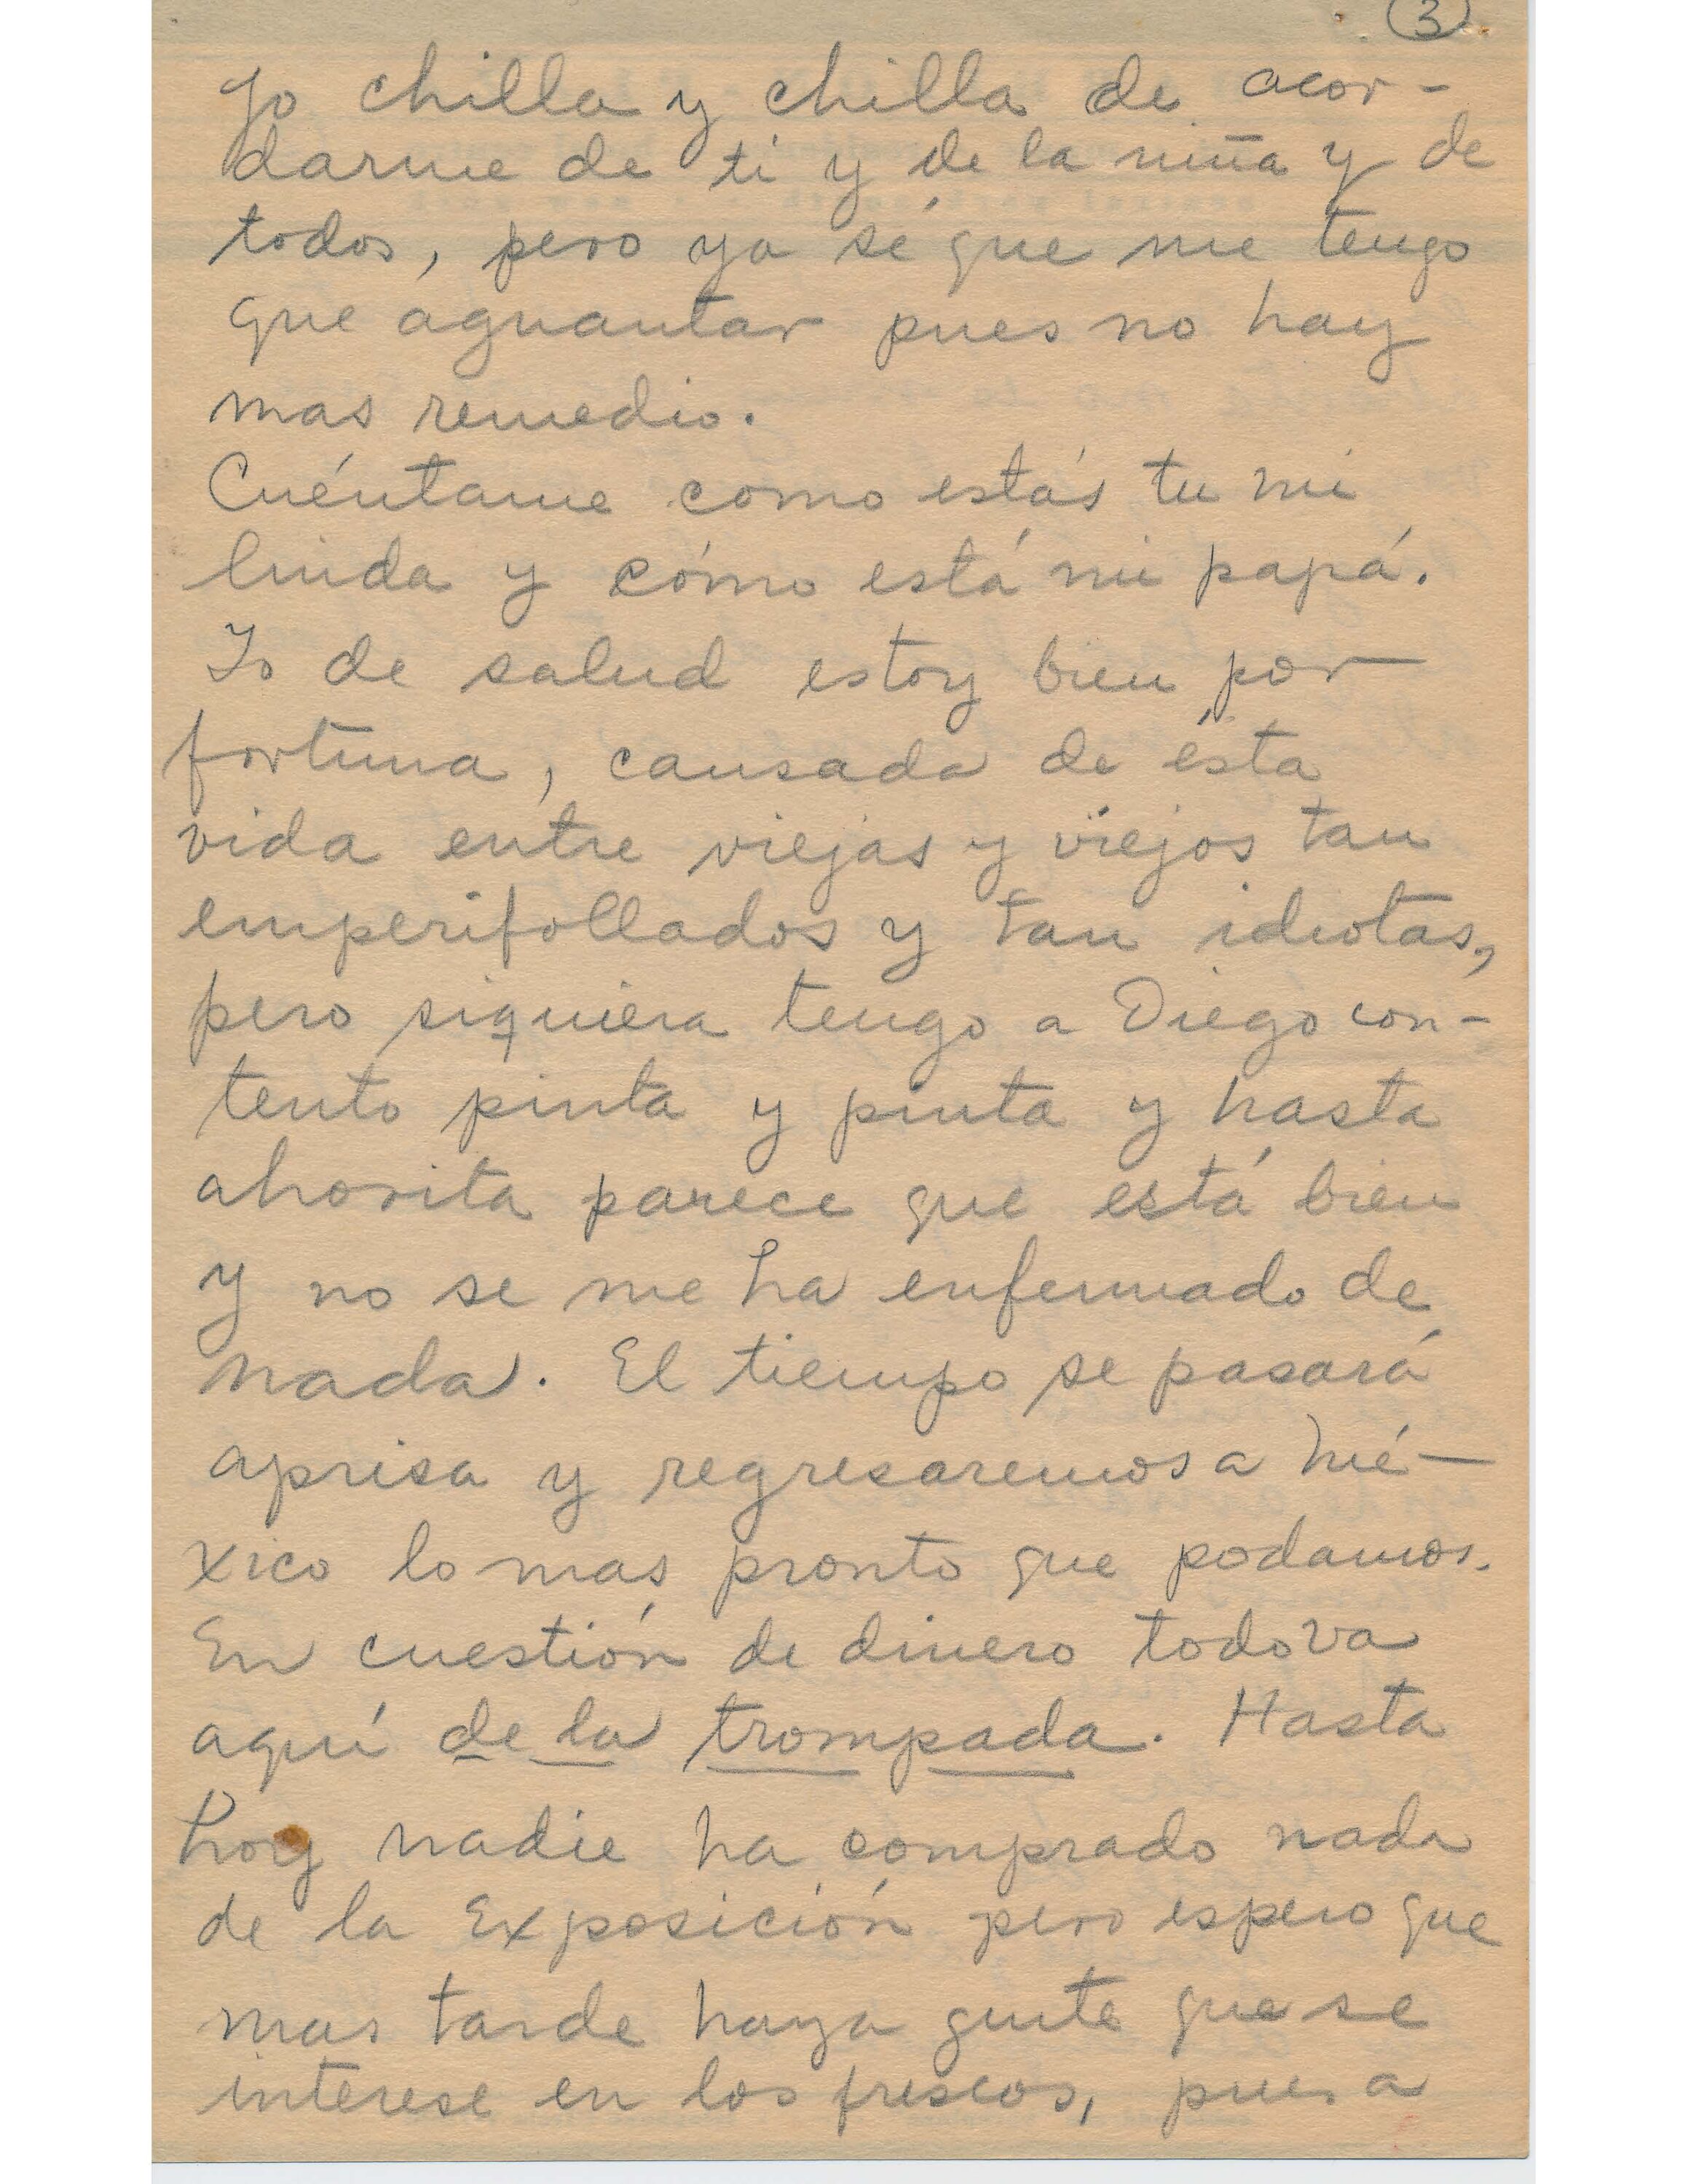 3
yo chilla y chilla de acor-
darme de ti y de la niña y de
todos, pero ya sé que me tengo
que aguantar pues no hay
mas remedio.
Cuéntame como estás tu mi
linda y cómo está mi papá.
Yo de salud estoy bien por
fortuna, cansada de ésta
vida entre viejas y viejos tan
emperifollados y tan idiotas,
pero siquiera tengo a Diego con-
tento pinta y pinta y hasta
ahorita parece que está bien
y no se me ha enfermado de
nada. El tiempo se pasará
aprisa y regresaremos a Mé-
xico lo mas pronto que podamos.
En cuestión de dinero todo va
aquí de la trompada. Hasta
hoy nadie ha comprado nada
de la Exposición pero espero que
mas tarde haya gente que se
interese en los frescos, pues a